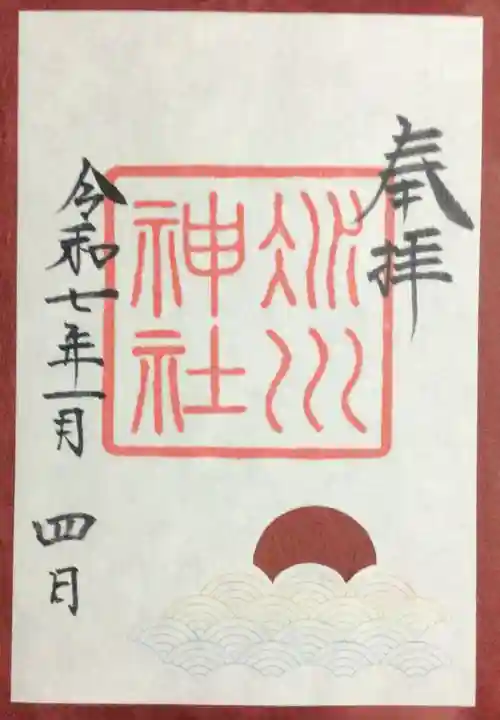 奉拝
冰川
神社
令和七年一月 四日